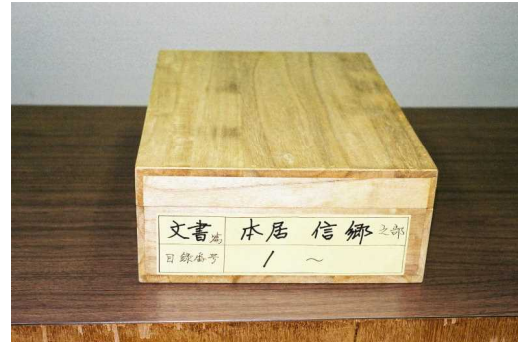 文書篇 本居 信郷 之部
目録番号 1 ～